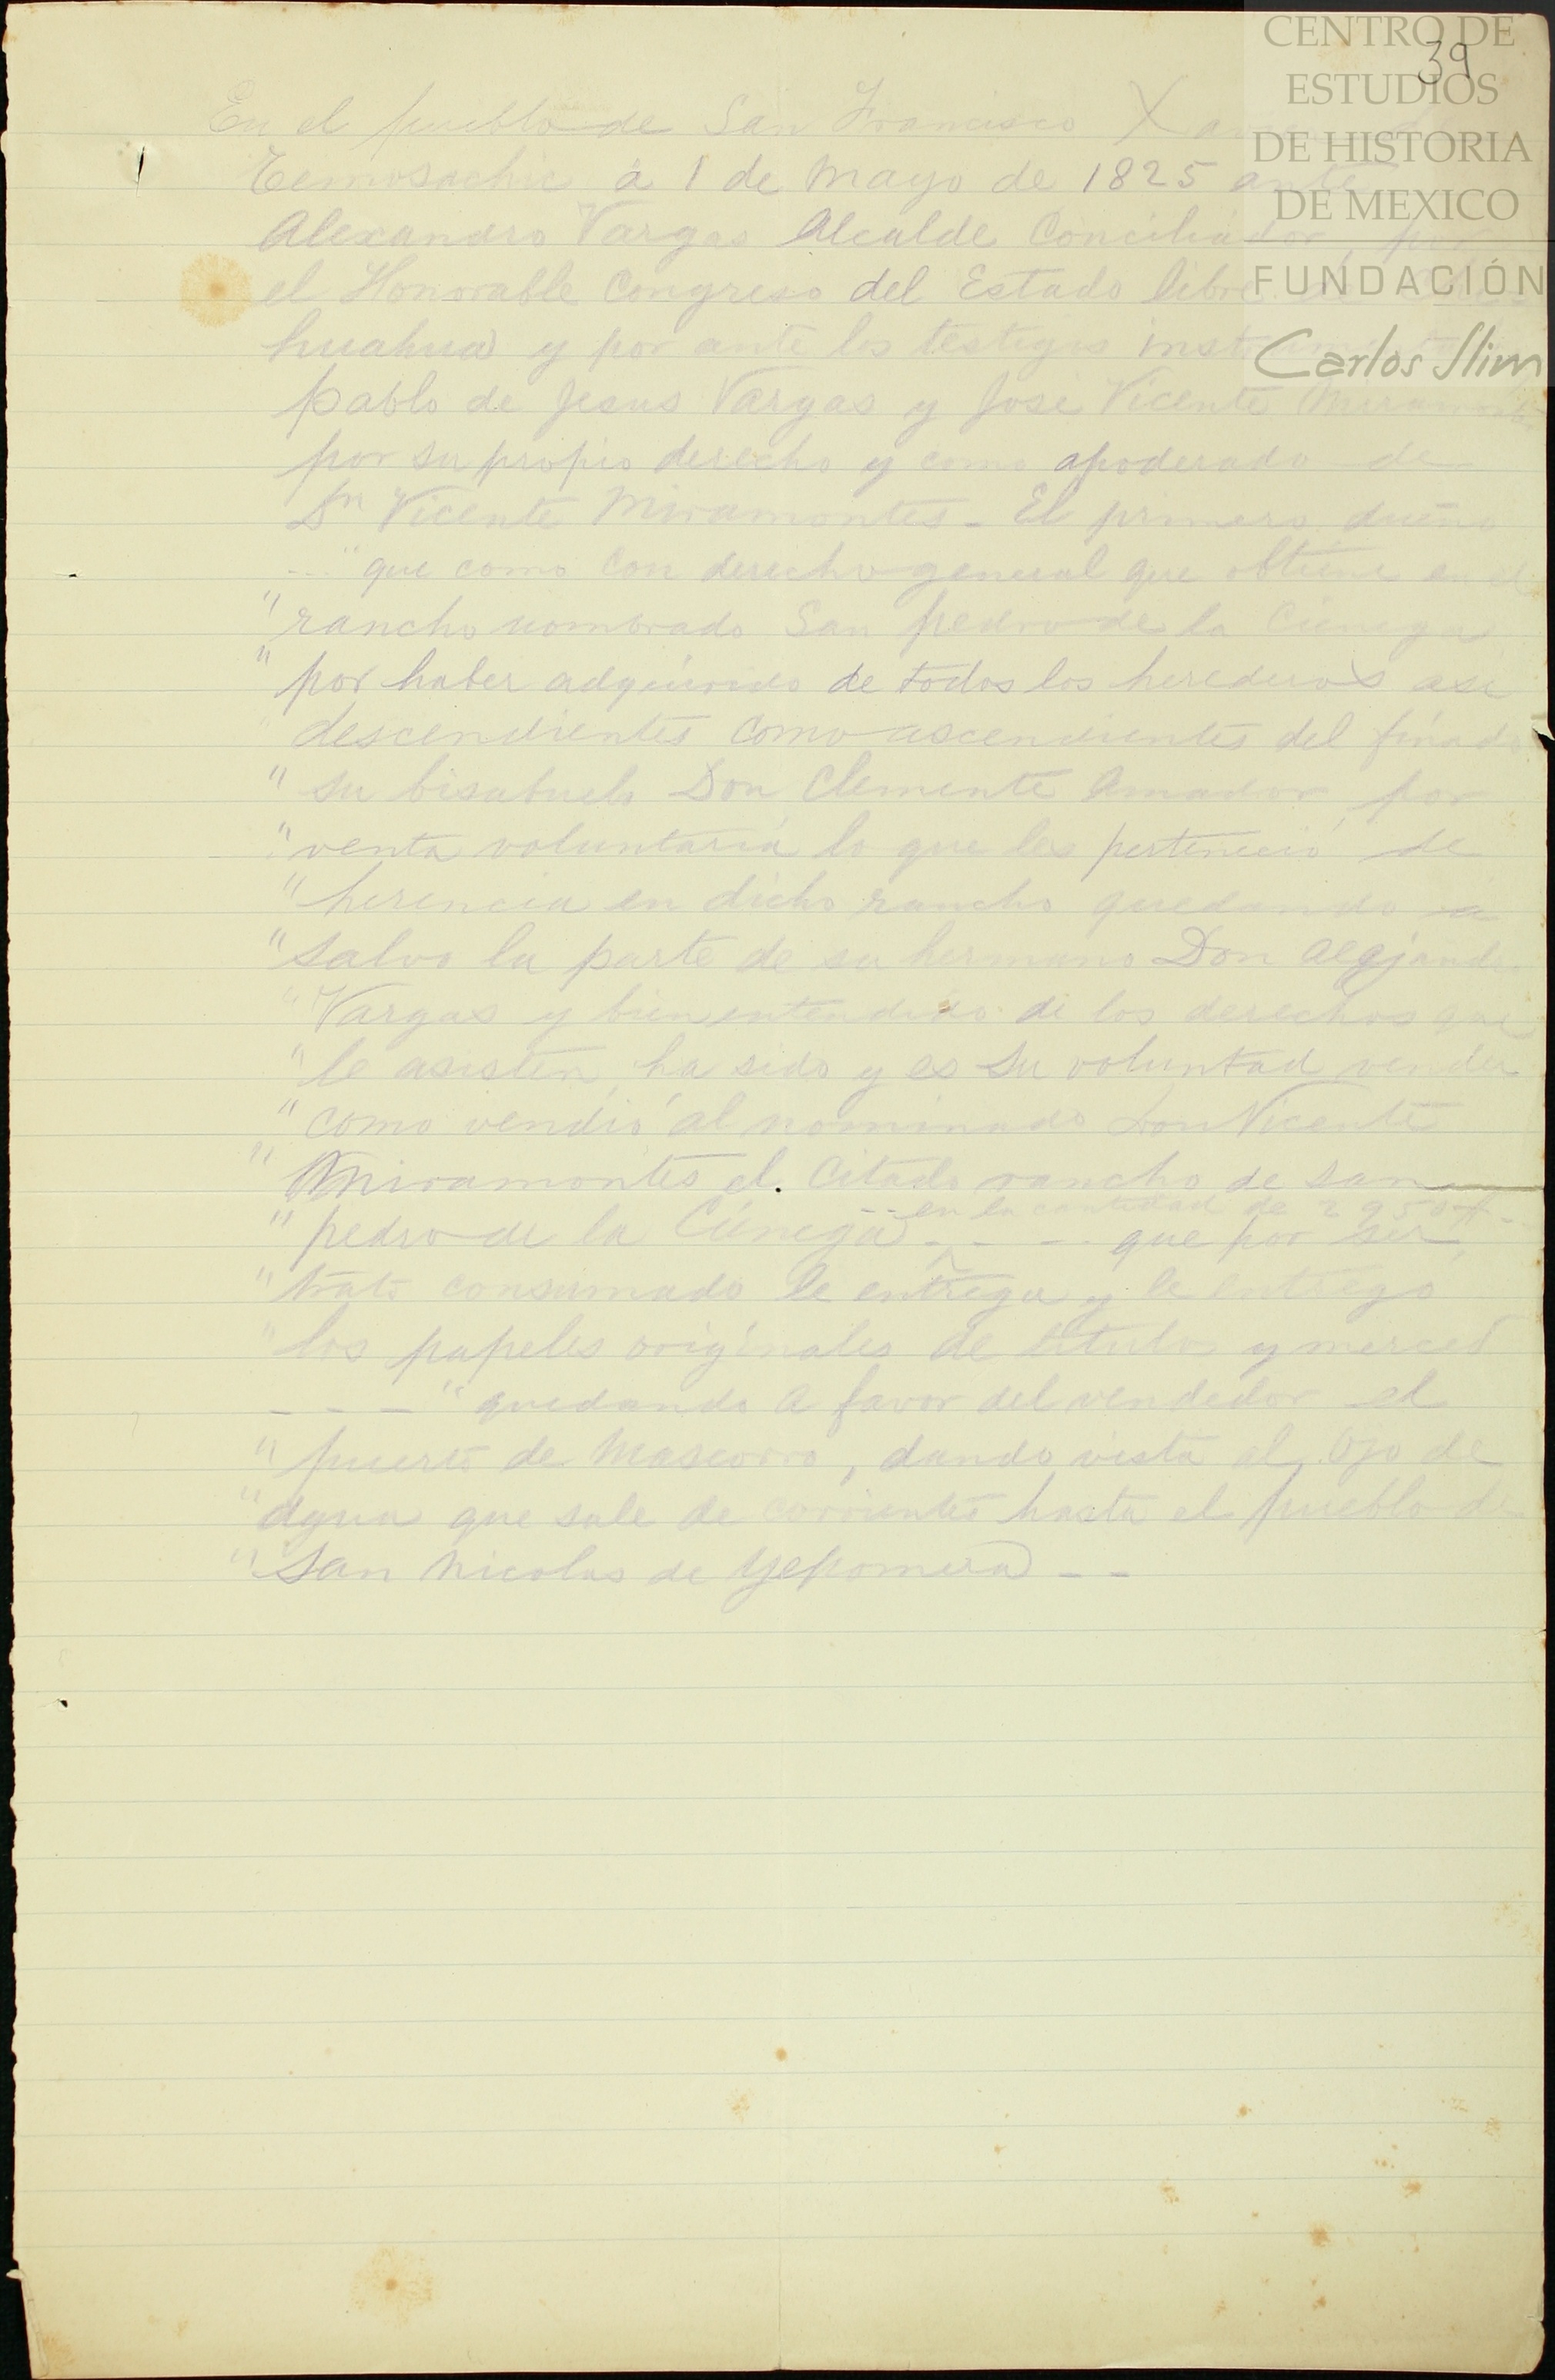 39
CENTRO DE
ESTUDIOS
DE HISTORIA
DE MEXICO
FUNDACIÓN
Carlos Slim
En el pueblo de San Francisco Xa
Temosachic á 1 de Mayo de 1825 ante
Alexandro Vargas Alcalde Conciliador, por
el Honorable Congreso del Estado libre
huahua y por ante los testigos inst
Pablo de Jesus Vargas y José Vicente Miramontes
por su propio derecho y como apoderado de
Dn Vicente Miramontes - El primero dueño
--- " que como con derecho general que obtiene en el
" rancho nombrado San pedro de la Cienega
" por haber adquirido de todos los herederos asi
" descendientes como ascendientes del finado
" su bisabuelo Don Clemente Amador por
" venta voluntaria lo que les perteneció de
" herencia en dicho rancho quedando a
" salvo la parte de su hermano Don Alejandro
" Vargas y bien entendido de los derechos que
" le asisten, ha sido y es su voluntad vender
" como vendió al nominado Don Vicente
" Miramontes el citado rancho de San
-- en la cantidad de
" pedro de la Cienega - - - - que por ser
" trato consumado le entrega y le entrego
" los papeles originales de titulo y merced
- - - " quedando a favor del vendedor el
" puerto de Mascorro, dando vista al Ojo de
" agua que sale de corrientes hasta el pueblo de
" San Nicolas de Yepomera - -